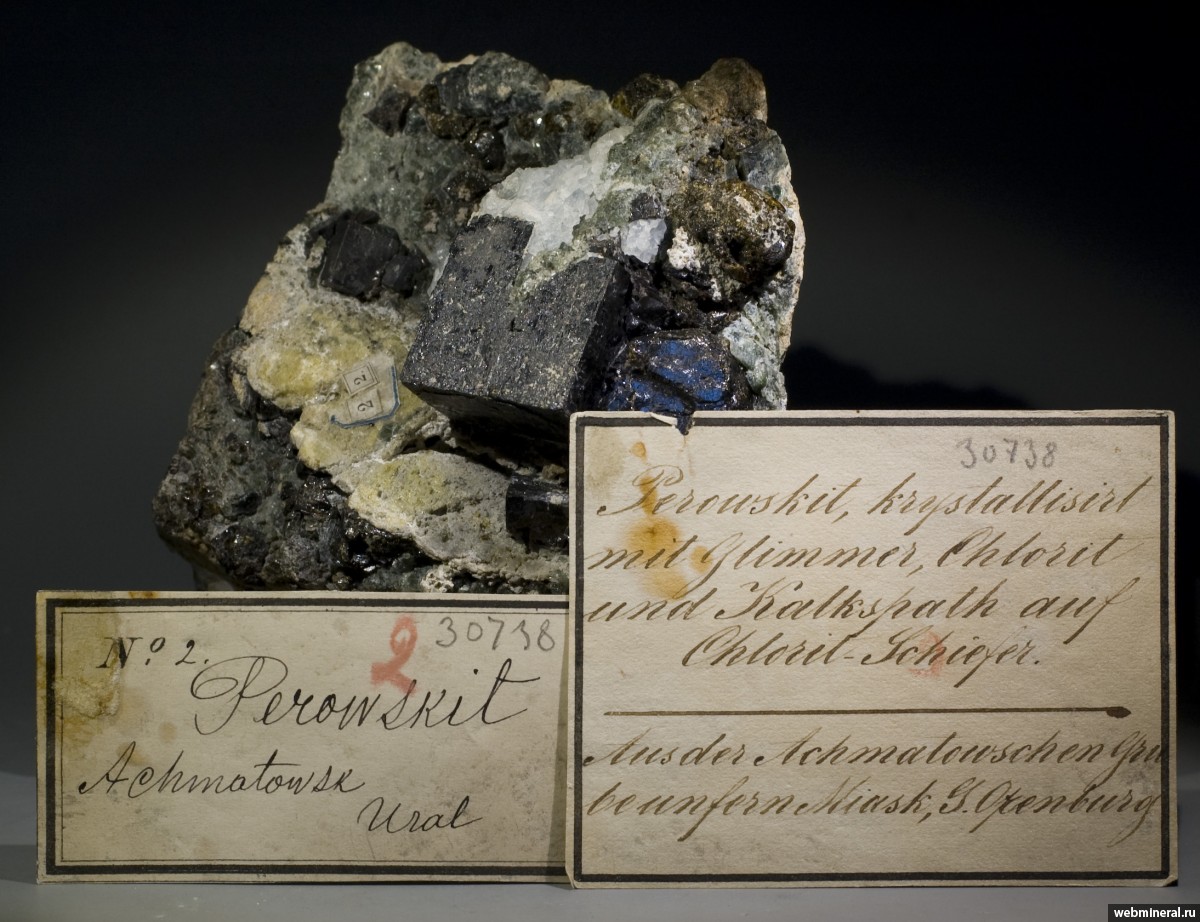 2 2
30738
Perowskit, krystallisirt
mit Glimmer, Chlorit
und Kalkspath auf
Chlorit-Schiefer.
Aus der Achmatowschen Gru
be unfern Miask, G. Orenburg
No. 2.
2
30738
Perowskit
Achmatowsk
Ural
webmineral.ru